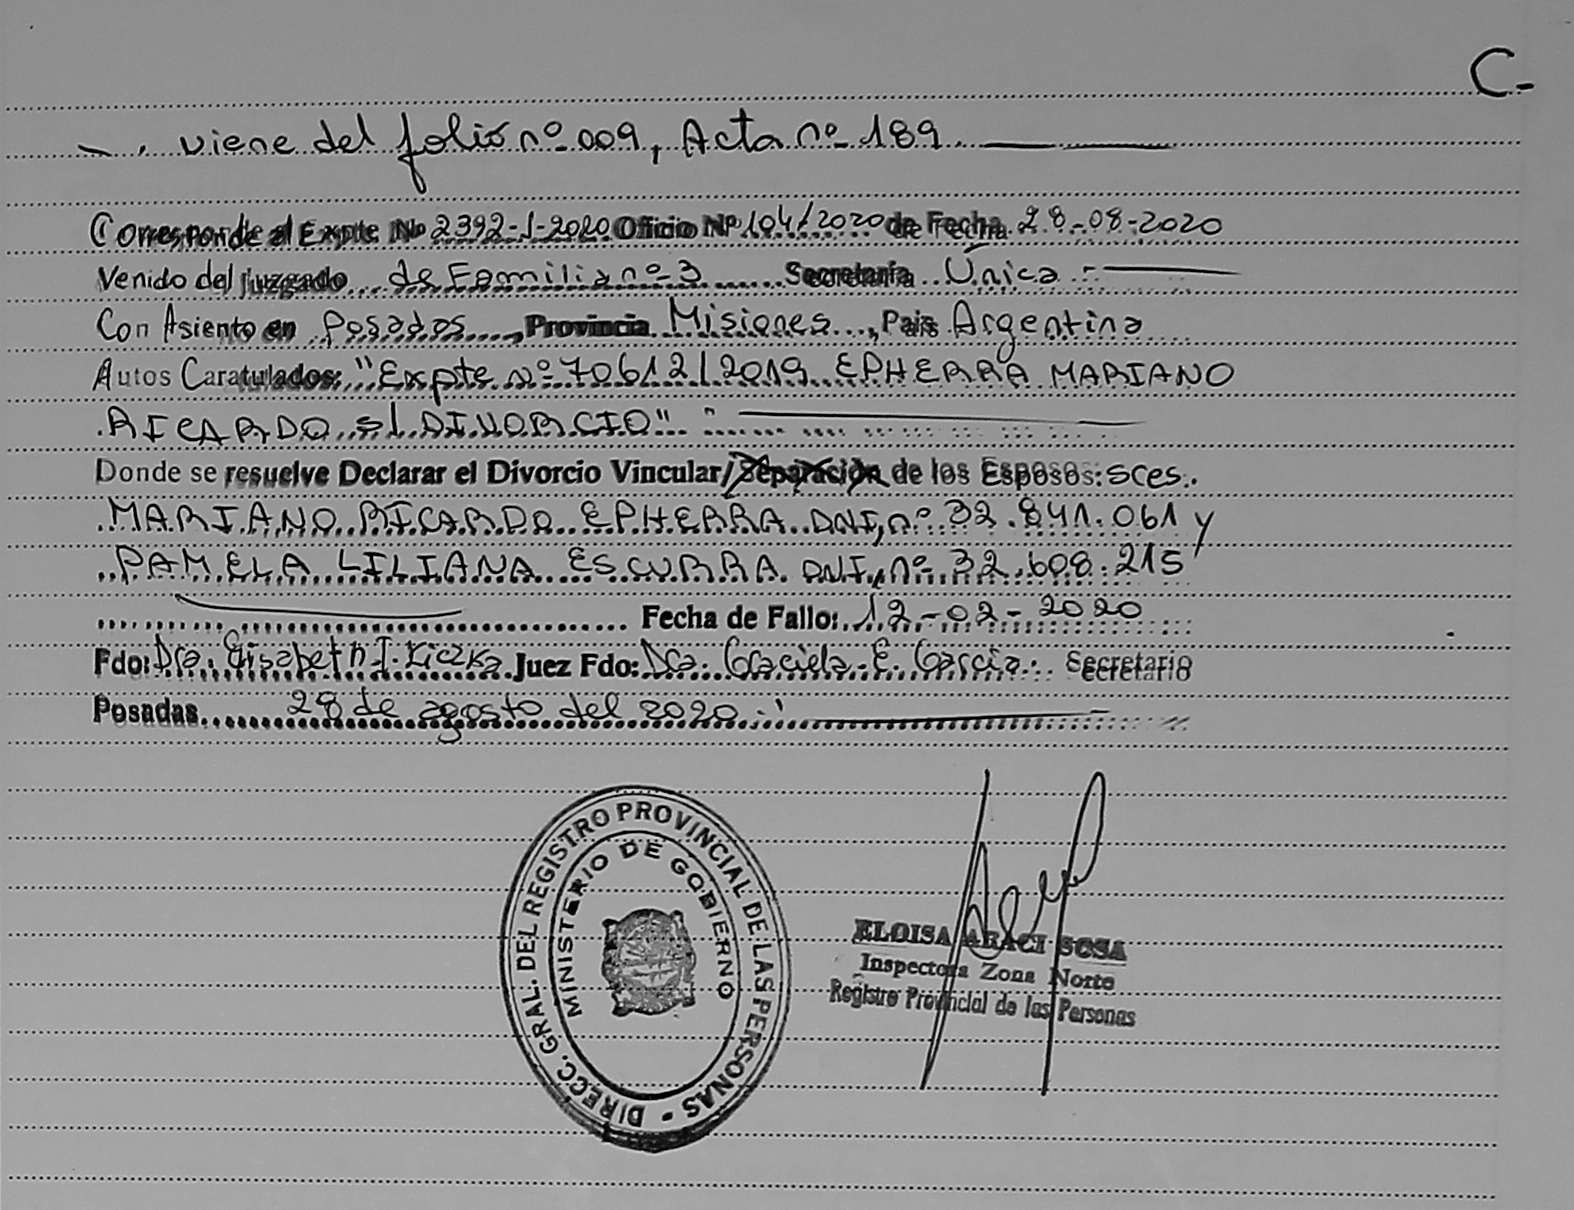 C-
viene del folio nº 009, Acta nº 189
Corresponde al Expte No 2392-J-2020 Oficio Nº 104/2020 de Fecha 28-08-2020
Venido del Juzgado de Familia nº 3 Secretaría Única
Con Asiento en Posadas, Provincia Misiones, Pais Argentina
Autos Caratulados: "Expte nº 70612/2019 EPHERRA MARIANO
RICARDO s/ DIVORCIO"
Donde se resuelve Declarar el Divorcio Vincular/Separación de los Esposos: sces.
MARIANO RICARDO EPHERRA DNI, nº 32.841.061 y
PAMELA LILIANA ESCURRA DNI, nº 32.608.215
Fecha de Fallo: 12-02-2020
Fdo: Dra. Elisabeth I. Kiczka Juez Fdo: Dra. Graciela E. Garcia Secretario
Posadas 28 de agosto del 2020
DIRECC. GRAL. DEL REGISTRO PROVINCIAL DE LAS PERSONAS -
MINISTERIO DE GOBIERNO
ELOISA ARACI SOSA
Inspectora Zona Norte
Registro Provincial de las Personas